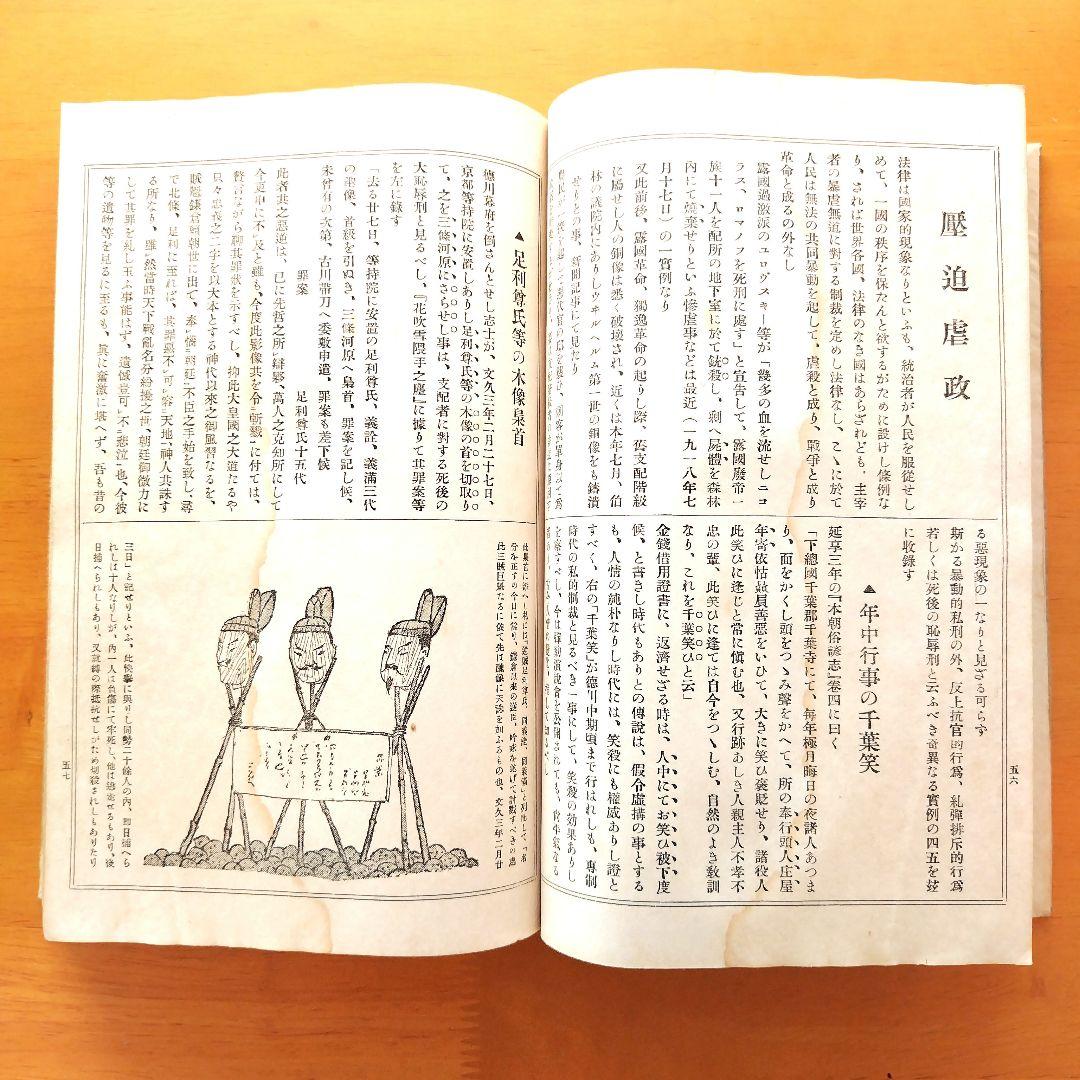 壓迫虐政
法律は國家的現象なりといふも、統治者が人民を服從せし
めて、一國の秩序を保たんと欲するがために設けし條例な
り、されば世界各國、法律のなき國はあらざれども、主宰
者の暴虐無道に對する制裁を定めし法律なし、こゝに於て
人民は無法の共同暴動を起して、虐殺と成り、戰爭と成り
革命と成るの外なし
露國過激派のユロヴスキー等が「幾多の血を流せしニコ
ラス、ロマノフを死刑に處す」と宣告して、露國廢帝一
族十一人を配所の地下室に於て銃殺し、剩へ屍體を森林
內にて燒棄せりといふ慘虐事などは最近(一九一八年七
月十七日)の一實例なり
又此前後、露國革命、獨逸革命の起りし際、舊支配階級
に屬せし人の銅像は悉く破壞され、近くは本年七月、伯
林の議院內にありしウヰルヘルム第一世の銅像をも鑄潰
せりとの事、新聞記事にて見たり
る惡現象の一なりと見ざる可らず
斯かる暴動的私刑の外、反上抗官的行爲、糺彈排斥的行爲
若しくは死後の恥辱刑と云ふべき奇異なる實例の四五を玆
に收錄す
▲年中行事の千葉笑
延享三年の『本朝俗諺志』卷四に曰く
「下總國千葉郡千葉寺にて、每年極月晦日の夜諸人あつま
り、面をかくし頭をつゝみ聲をかへて、所の奉行頭人庄屋
年寄依怙贔屓善惡をいひて、大きに笑ひ褒貶せり、諸役人
此笑ひに逢じと常に愼む也、又行跡あしき人親主人不孝不
忠の輩、此笑ひに逢ては自今をつゝしむ、自然のよき敎訓
なり、これを千葉笑ひと云」
金錢借用證書に、返濟せざる時は、人中にてお笑ひ被下度
候、と書きし時代もありとの傳說は、假令虛構の事とする
も、人情の純朴なりし時代には、笑殺にも權威ありし證と
すべく、右の「千葉笑」が德川中期頃まで行はれしも、專制
時代の私的制裁と見るべき一事にして、笑殺の効果ありし
五六
▲足利尊氏等の木像梟首
德川幕府を倒さんとせし志士が、文久三年二月二十七日、
京都等持院に安置しありし足利尊氏等の木像の首を切取り
て、之を三條河原にさらせし事は、支配者に對する死後の
大恥辱刑と見るべし、『花吹雪隈手之塵』に據りて其罪案等
を左に錄す
「去る廿七日、等持院に安置の足利尊氏、義詮、義滿三代
の塑像、首級を引ぬき、三條河原へ梟首、罪案を記し候、
未曾有の次第、古川帶刀へ委敷申遣、罪案も差下候
罪案　足利尊氏十五代
此者共之惡逆は、已に先哲之所ㇾ辯駁、萬人之克知所にして
今更申に不ㇾ及と雖も、今度此影像共を令ㇾ斬戮ㇾに付ては、
贅言ながら聊其罪狀を示すべし、抑此大皇國之大道たるや
只々忠義之二字を以大本とする神代以來之御風習なるを、
賊臣鎌倉賴朝世に出て、奉ㇾ惱二朝廷一不臣之手始を致し、尋
で北條、足利に至れば、其罪惡不ㇾ可ㇾ容二天地一、神人共誅す
る所なり、雖ㇾ然當時天下戰亂名分紛擾之世、朝廷御微力に
して其罪を糺し玉ふ事能はず、遺憾豈可ㇾ不二悲泣一也、今彼
等の遺物等を見るに至るも、眞に奮激に堪へず、吾も昔の
三日」と記せりといふ、此快擧に與りし同勢二十餘人の內、卽日捕へら
れしは十人なりしが、內一人は負傷にて牢死し、他は逃走せるもあり、後
日捕へられしもあり、又就縛の際抵抗せしがため切殺されしもありたり
五七